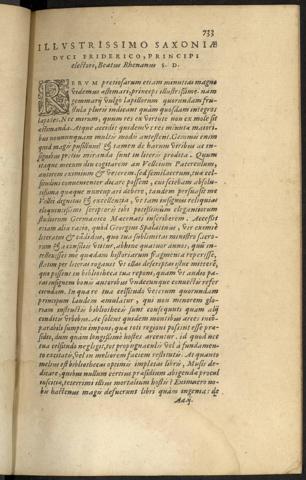 733
ILLVSTRISSIMO SAXONIÆ
DVCI FRIDERICO, PRINCIPI
electori, Beatus Rhenanus S. D.
RERVM pretiosarum etiam minutias magno
videmus æstimari, princeps illustrissime. nam
gemmarum vulgo lapillorum quorundam fru-
stula pluris indicant quàm quosdam integros
lapides. Nec mirum, quum res ex virtute non ex mole sit
æstimanda. Atque accidit quidem vt res minutæ maiori-
bus nonnunquam multis modis antestent. Gemmis enim
quid magis pusillum? & tamen de harum viribus ac in-
signibus prorsus miranda sunt in literis prodita. Quum
itaque mecum diu cogitarem an Velleium Paterculum,
autorem eximium & veterem, sed semilacerum, tuæ cel-
situdini conuenienter dicare possem, cui scirem absolu-
tissima quæque nuncupari debere, tandem persuasit me
Vellei dignitas & excellentia, vt tam insignes reliquias
eloquentissimi scriptoris tibi potissimum elegantiorum
studiorum Germaniæ Mœcenati inscriberem. Accessit
etiam alia ratio, quòd Georgius Spalatinus, vir eximiè
literatus & candidus, quo tua sublimitas ministro sacro-
rum & à consiliis vtitur, abhinc quatuor annos, quùm in-
tellexisset me quædam historiarum fragmenta reperisse,
statim per literas rogauit vt illas descriptas istuc mitterem,
quo possent in bibliotheca tua reponi, quam vt audio pa-
ras insignem bonis autoribus vndecunque conuectis refer-
ciendam. In qua re tua celsitudo veterum quorundam
principum laudem æmulatur, qui non minorem glo-
riam instructis bibliothecis sunt consequuti quàm ab
conditis vrbibus. At solent quidem montibus arces incom-
parabili sumptu imponi, quæ toti regioni possint esse præ-
sidio, dum quàm longissimè hostes arcentur. id quod nec
tua celsitudo negligit, tot propugnaculis vel à fundamen-
to excitatis, vel in meliorem faciem restitutis. At quanto
melius est bibliothecas optimis impletas libris, Musis de-
dicare, quibus nullum certius præsidium abigenda procul
inscitia, teterrimi illius mortalium hostis? Enimuero no-
bis hactenus magis defuerunt libri quàm ingenia: de